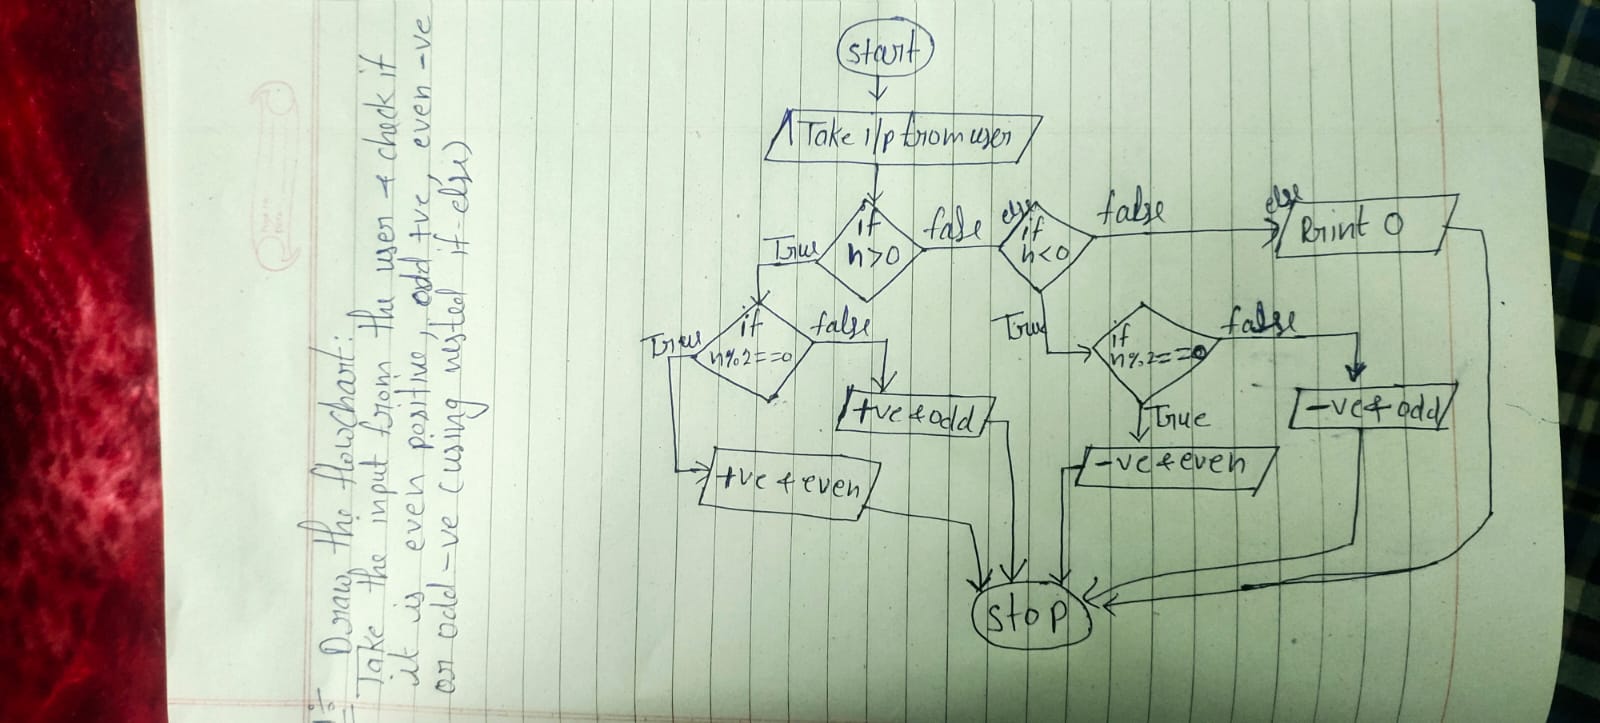 Draw the flowchart:
Take the input from the user & check if
it is even positive, odd +ve, even -ve
or odd -ve (using nested if-else)
start
Take i/p from user
if
n>0
True
false
else
if
n<0
false
else
Print 0
True
if
n%2==0
false
True
if
n%2==0
false
+ve & odd
True
-ve & odd
+ve & even
-ve & even
stop